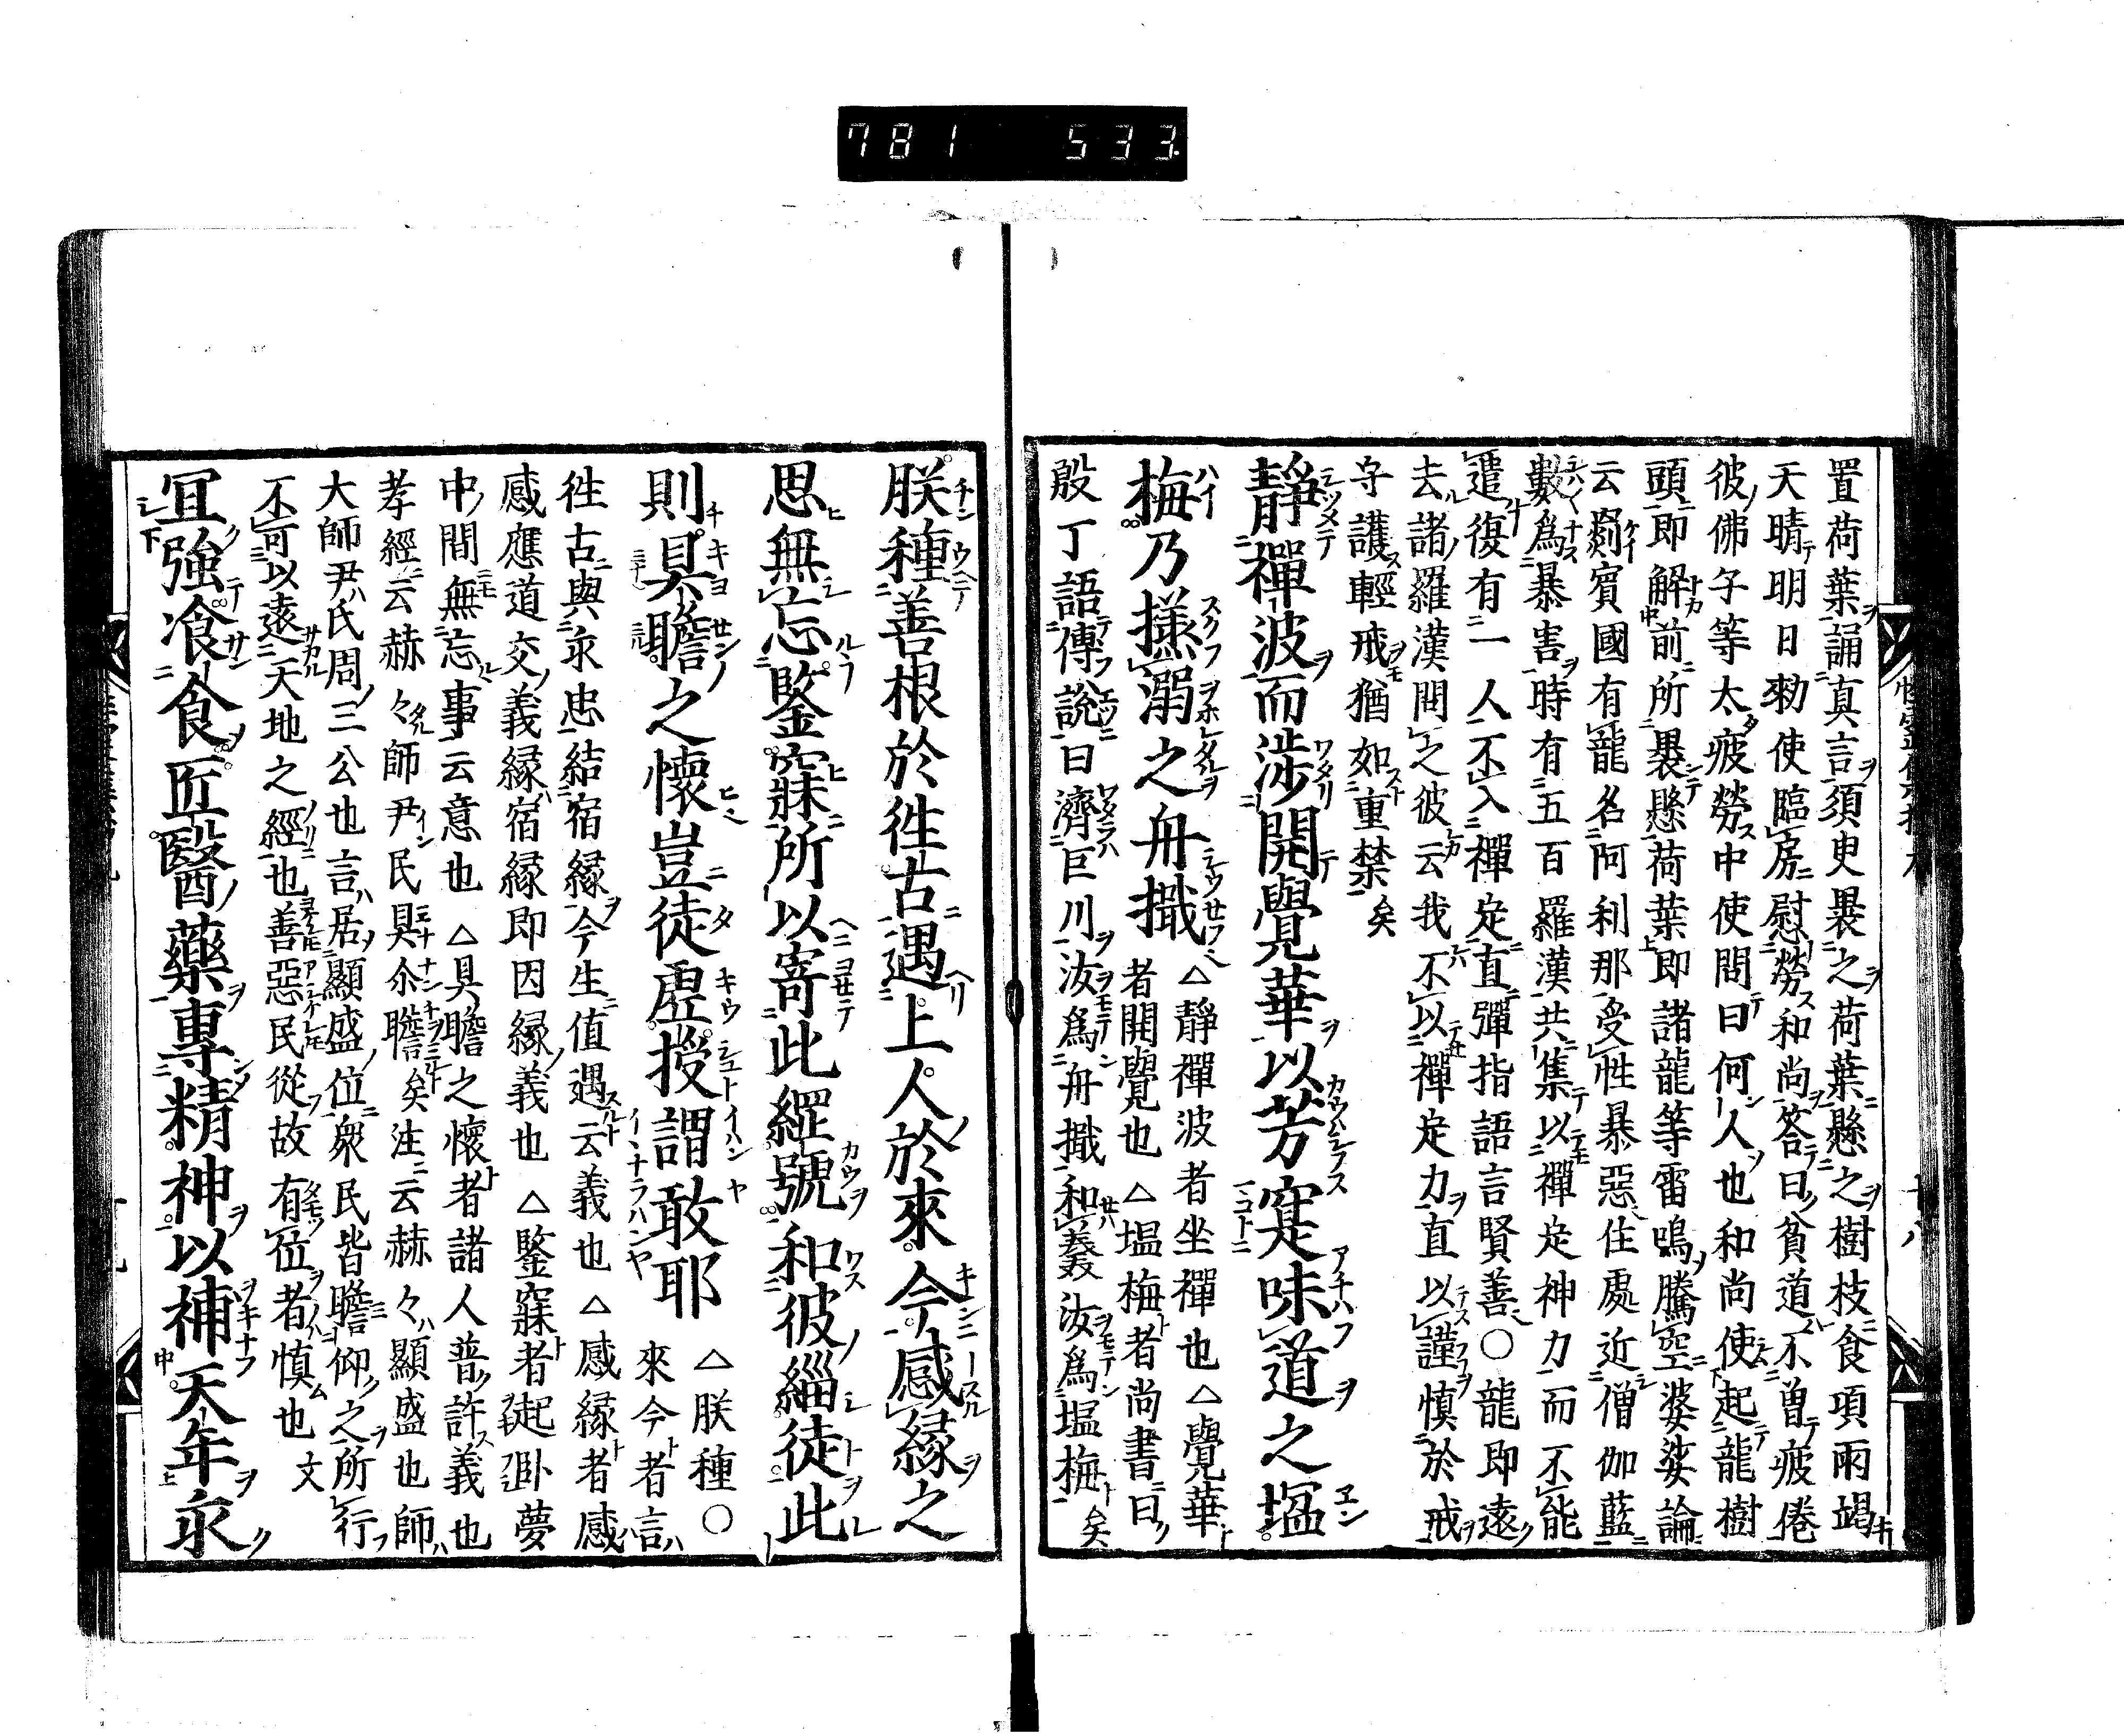 781 533
置荷葉誦真言須臾褁之荷葉懸之樹枝食項雨竭
天晴明日勑使臨房慰勞和尚答曰貧道不曽疲倦
彼佛子等太疲勞中使問曰何人也和尚使起龍樹
頭即解前所褁懸荷葉即諸龍等雷鳴騰空婆娑論
云罽賓國有龍名阿利那受性暴惡住處近僧伽藍
數為暴害時有五百羅漢共集以禪定神力而不能
遣復有一人不入禪定直彈指語言賢善○龍即遠
去諸羅漢問之彼云我不以禪定力直以謹慎於戒
守護輕戒猶如重禁矣
靜禪波而涉開覺華以芳寔味道之塩
梅乃㨾溺之舟擑△靜禪波者坐禪也△覺華
者開覺也△塩梅者尚書曰
殷丁語傳說曰濟巨川汝為舟擑和羹汝為塩梅矣
朕種善根於徃古遇上人於來今感緣之
思無忘鑒寐所以寄此綛號和彼緇徒此
則具瞻之懷豈徒虛授謂敢耶△朕種○
來今者言
徃古與永忠結宿緣今生值遇云義也△感緣者感
應道交義緣宿緣即因緣義也△鑒寐者起臥夢
中間無忘事云意也△具瞻之懷者諸人普許義也
孝經云赫々師尹民具尒瞻矣注云赫々顯盛也師
大師尹氏周三公也言居顯盛位衆民皆瞻仰之所行
不可以遠天地之經也善惡民從故有位者慎也文
冝強飡食匠醫藥專精神以補天年永